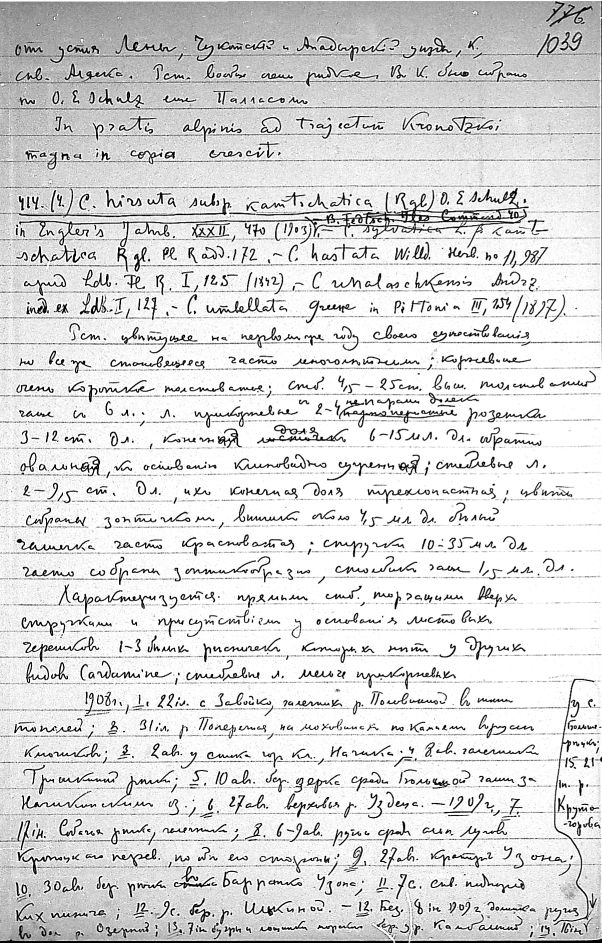 776
1039
отъ устья Лены, Чукотскій и Анадырскій уѣзды, К.,
сѣв. Аляска. Раст. вообще очень рѣдкое. В К. было собрано
по O. E Schulz еще Палласомъ
In pratis alpinis ad trajectum Kronotzkoi
magna in copia crescit.
414. (4.) C. hirsuta subsp. kamtschatica (Rgl) O. E Schulz.
in Engler's Jahrb. XXXII, 470 (1903), – C. sylvatica L. β kamt
schatica Rgl. Pl. Radd. 172, – C. hastata Willd. Herb. no 11,987
apud Ldb. Fl R. I, 125 (1842), – C unalaschkensis Andrz.
ined. ex Ldb. I, 127, – C. umbellata Greene in Pittonia III, 154 (1897).
Раст. цвѣтущее на первомъ же году своего существованія
но все же становящееся часто многолѣтнимъ; корневище
очень короткое толстоватое; стеб. 4,5 – 25 ст. выш. толстоватый
чаще съ 6 л.; л. прикорневые 2-4 розетка
3-12 ст. дл., конечная доля 6-15 мл. дл. обратно
овальная, къ основанію клиновидно суженная; стеблевые л.
2-9,5 ст. дл., ихъ конечная доля трехлопастная; цвѣты
собраны зонтичкомъ, вѣнчикъ около 4,5 мл дл. бѣлый
чашечка часто красноватая; стручки 10-35 мл дл
часто собраны зонтикообразно, столбикъ чаще 1,5 мл. дл.
Характеризуется прямыми стеб., торчащими вверхъ
стручками и присутствіемъ у основанія листовыхъ
черешковъ 1-3 бѣлыхъ рѣсничекъ, которыхъ нѣтъ у другихъ
видовъ Cardamine; стеблевые л. меньше прикорневыхъ
1908 г., 1. 22 іл. с Завойко, галечникъ р. Половинной въ тѣни
тополей; 2. 31 іл. р Поперечная, на моховинахъ по камнямъ
ключиковъ; 3. 2 ав. у стика гор. кл., Начика; 4. 8 ав. галечникъ
рѣки; 5. 10 ав. бер. озерка среди за
Начикинскимъ оз.; 6. 27 ав. верховья р. – 1909 г., 7.
17 ін. Собачья рѣчка, галечникъ; 8. 6-9 ав. ручьи среди альп. луговъ
Кроноцкаго перев., по обѣ его стороны; 9. 27 ав. кратеръ Узона;
10. 30 ав. бер. рѣчки Барранко Узона; 11. 7 с. сѣв. подножіе
Кихпиныча; 12. 9 с. бер. р. – 12. Без. 8 ін 1909 г. долинка ручья
въ дол. р Озерной; 13. 7 ін бер. р. 14.
у с.
Больше-
рѣцка;
15. 21
р.
Круто-
горова